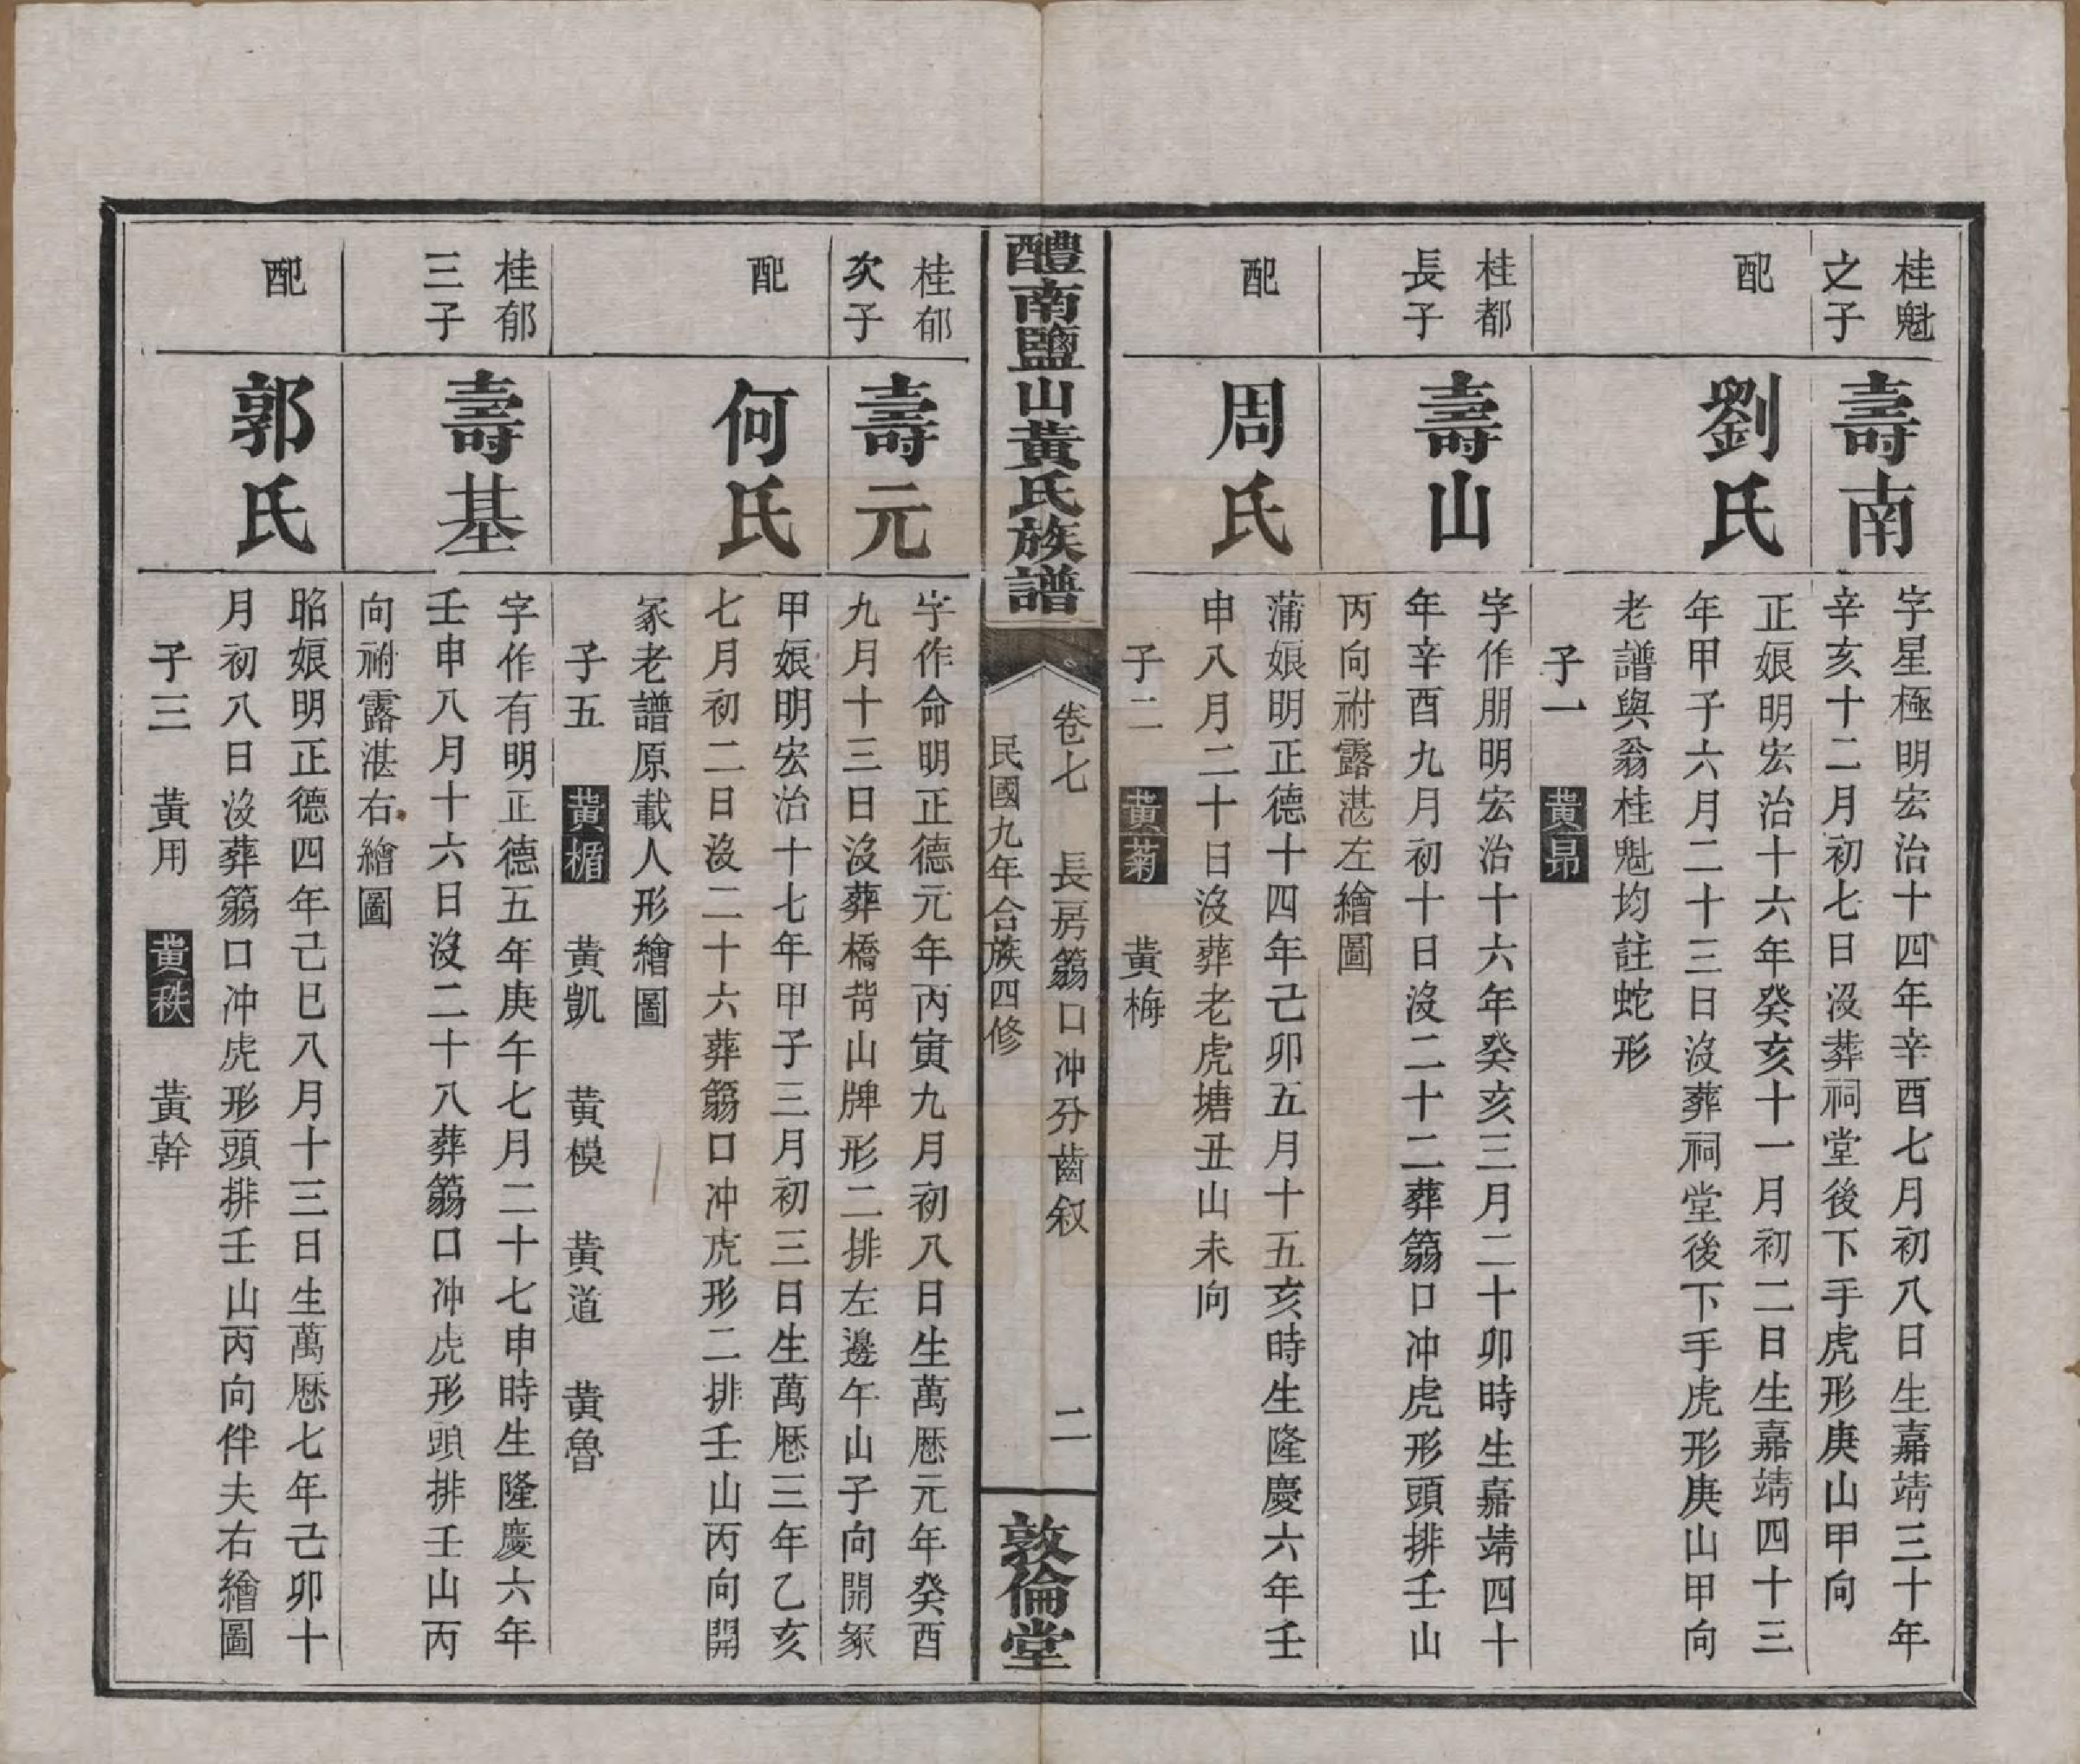 桂魁
之子
壽南
字星極明宏治十四年辛酉七月初八日生嘉靖三十年
辛亥十二月初七日沒葬祠堂後下手虎形庚山甲向
配
劉氏
正娘明宏治十六年癸亥十一月初二日生嘉靖四十三
年甲子六月二十三日沒葬祠堂後下手虎形庚山甲向
老譜與翁桂魁均註蛇形
子一　黃昂
桂都
長子
壽山
字作朋明宏治十六年癸亥三月二十卯時生嘉靖四十
年辛酉九月初十日沒二十二葬篛口冲虎形頭排壬山
丙向祔露湛左繪圖
配
周氏
蒲娘明正德十四年己卯五月十五亥時生隆慶六年壬
申八月二十日沒葬老虎塘丑山未向
子二　黃菊　黃梅
醴南鹽山黃氏族譜
卷七　長房篛口冲分齒叙　二
民國九年合族四修
敦倫堂
桂郁
次子
壽元
字作命明正德元年丙寅九月初八日生萬厯元年癸酉
九月十三日沒葬橋背山牌形二排左邊午山子向開冢
配
何氏
甲娘明宏治十七年甲子三月初三日生萬厯三年乙亥
七月初二日沒二十六葬篛口冲虎形二排壬山丙向開
冢老譜原載人形繪圖
子五　黃楯　黃凱　黃模　黃道　黃魯
桂郁
三子
壽基
字作有明正德五年庚午七月二十七申時生隆慶六年
壬申八月十六日沒二十八葬篛口冲虎形頭排壬山丙
向祔露湛右繪圖
配
郭氏
昭娘明正德四年己巳八月十三日生萬厯七年己卯十
月初八日沒葬篛口冲虎形頭排壬山丙向伴夫右繪圖
子三　黃用　黃秩　黃幹